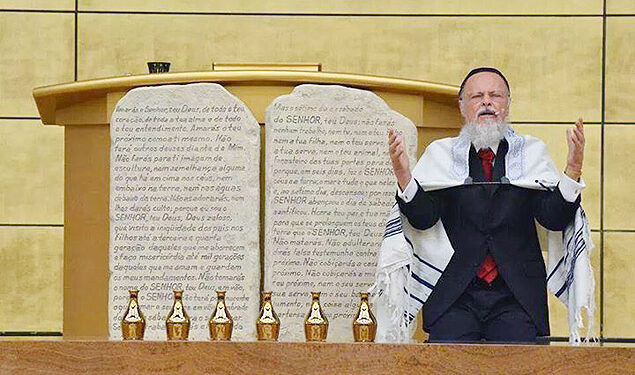 Amarás o Senhor, teu Deus, de todo o teu
coração, de toda a tua alma e de todo
o teu entendimento. Amarás o teu
próximo como a ti mesmo. Não
terás outros deuses diante de Mim.
Não farás para ti imagem de
escultura, nem semelhança alguma
do que há em cima nos céus, nem
embaixo na terra, nem nas águas
debaixo da terra. Não as adorarás, nem
lhes darás culto; porque eu sou
o SENHOR, teu Deus, Deus zeloso,
que visito a iniquidade dos pais nos
filhos até a terceira e quarta
geração daqueles que me aborrecem
e faço misericórdia até mil gerações
daqueles que me amam e guardam
os meus mandamentos. Não tomarás
o nome do SENHOR, teu Deus, em vão,
porque o SENHOR
Mas o sétimo dia é o sábado
do SENHOR, teu Deus; não farás
nenhum trabalho, nem tu, nem o teu
a tua filha, nem o teu servo
a tua serva, nem o teu animal
forasteiro das tuas portas para
porque, em seis dias, fez o SENHOR
céus e a terra, o mar e tudo o que neles
ao sétimo dia, descansou;
SENHOR abençoou o dia de sábado
santificou. Honra teu pai e tua mãe
para que se prolonguem os teus dias
terra que o SENHOR, teu Deus
Não matarás. Não adulterarás
Não
falso testemunho contra
próximo. Não cobiçarás a casa
próximo. Não cobiçarás a
próximo, nem o seu
sua serva, nem o seu boi, nem